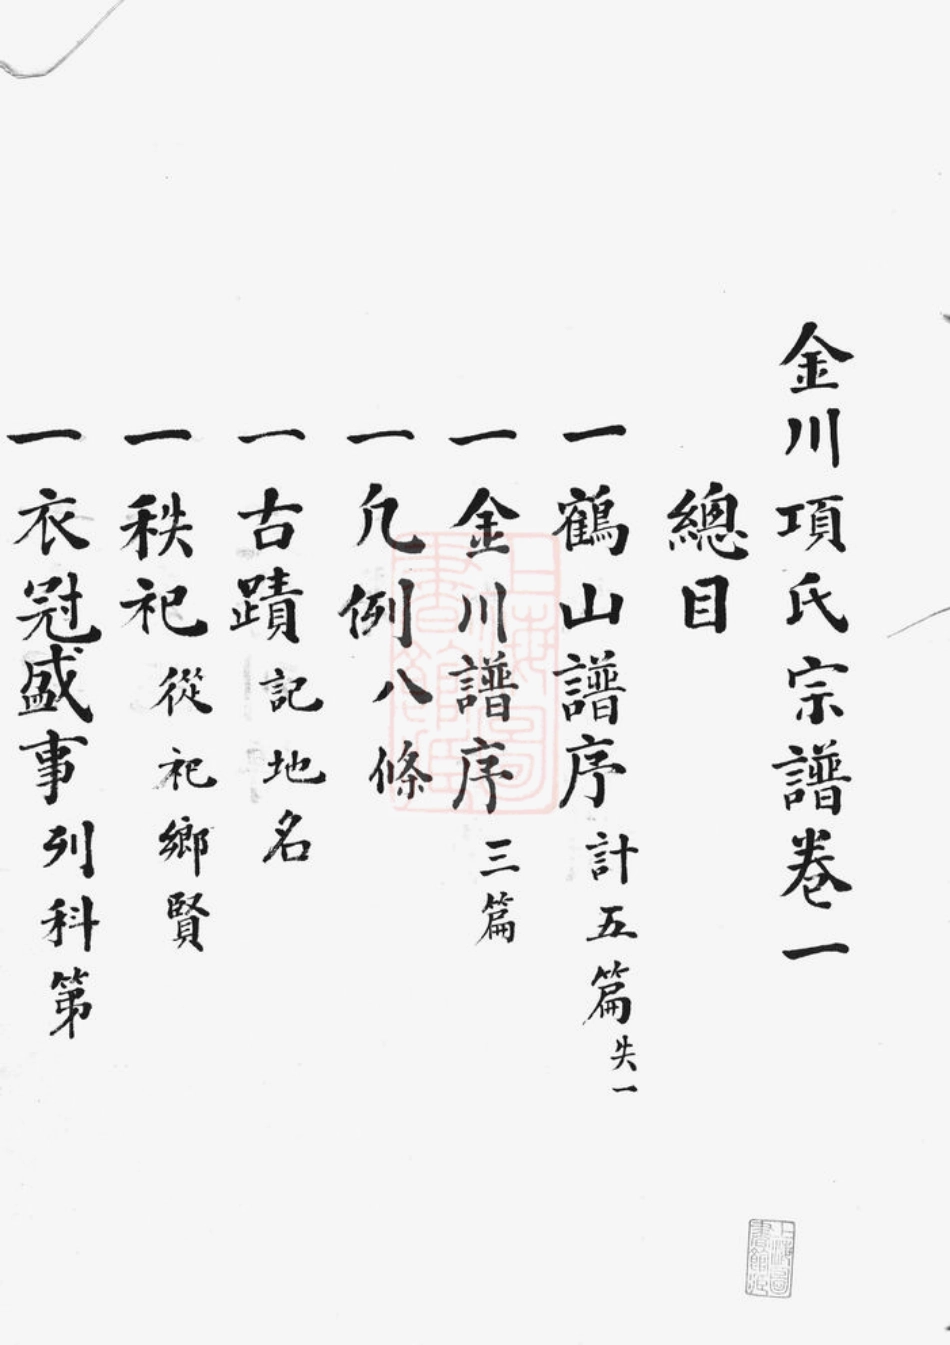 金川項氏宗譜卷一
總目
一鶴山譜序計五篇失一
一金川譜序三篇
一凡例八條
一古蹟記地名
一秩祀從祀鄉賢
一衣冠盛事列科第
上海圖書館藏
上海圖書館藏